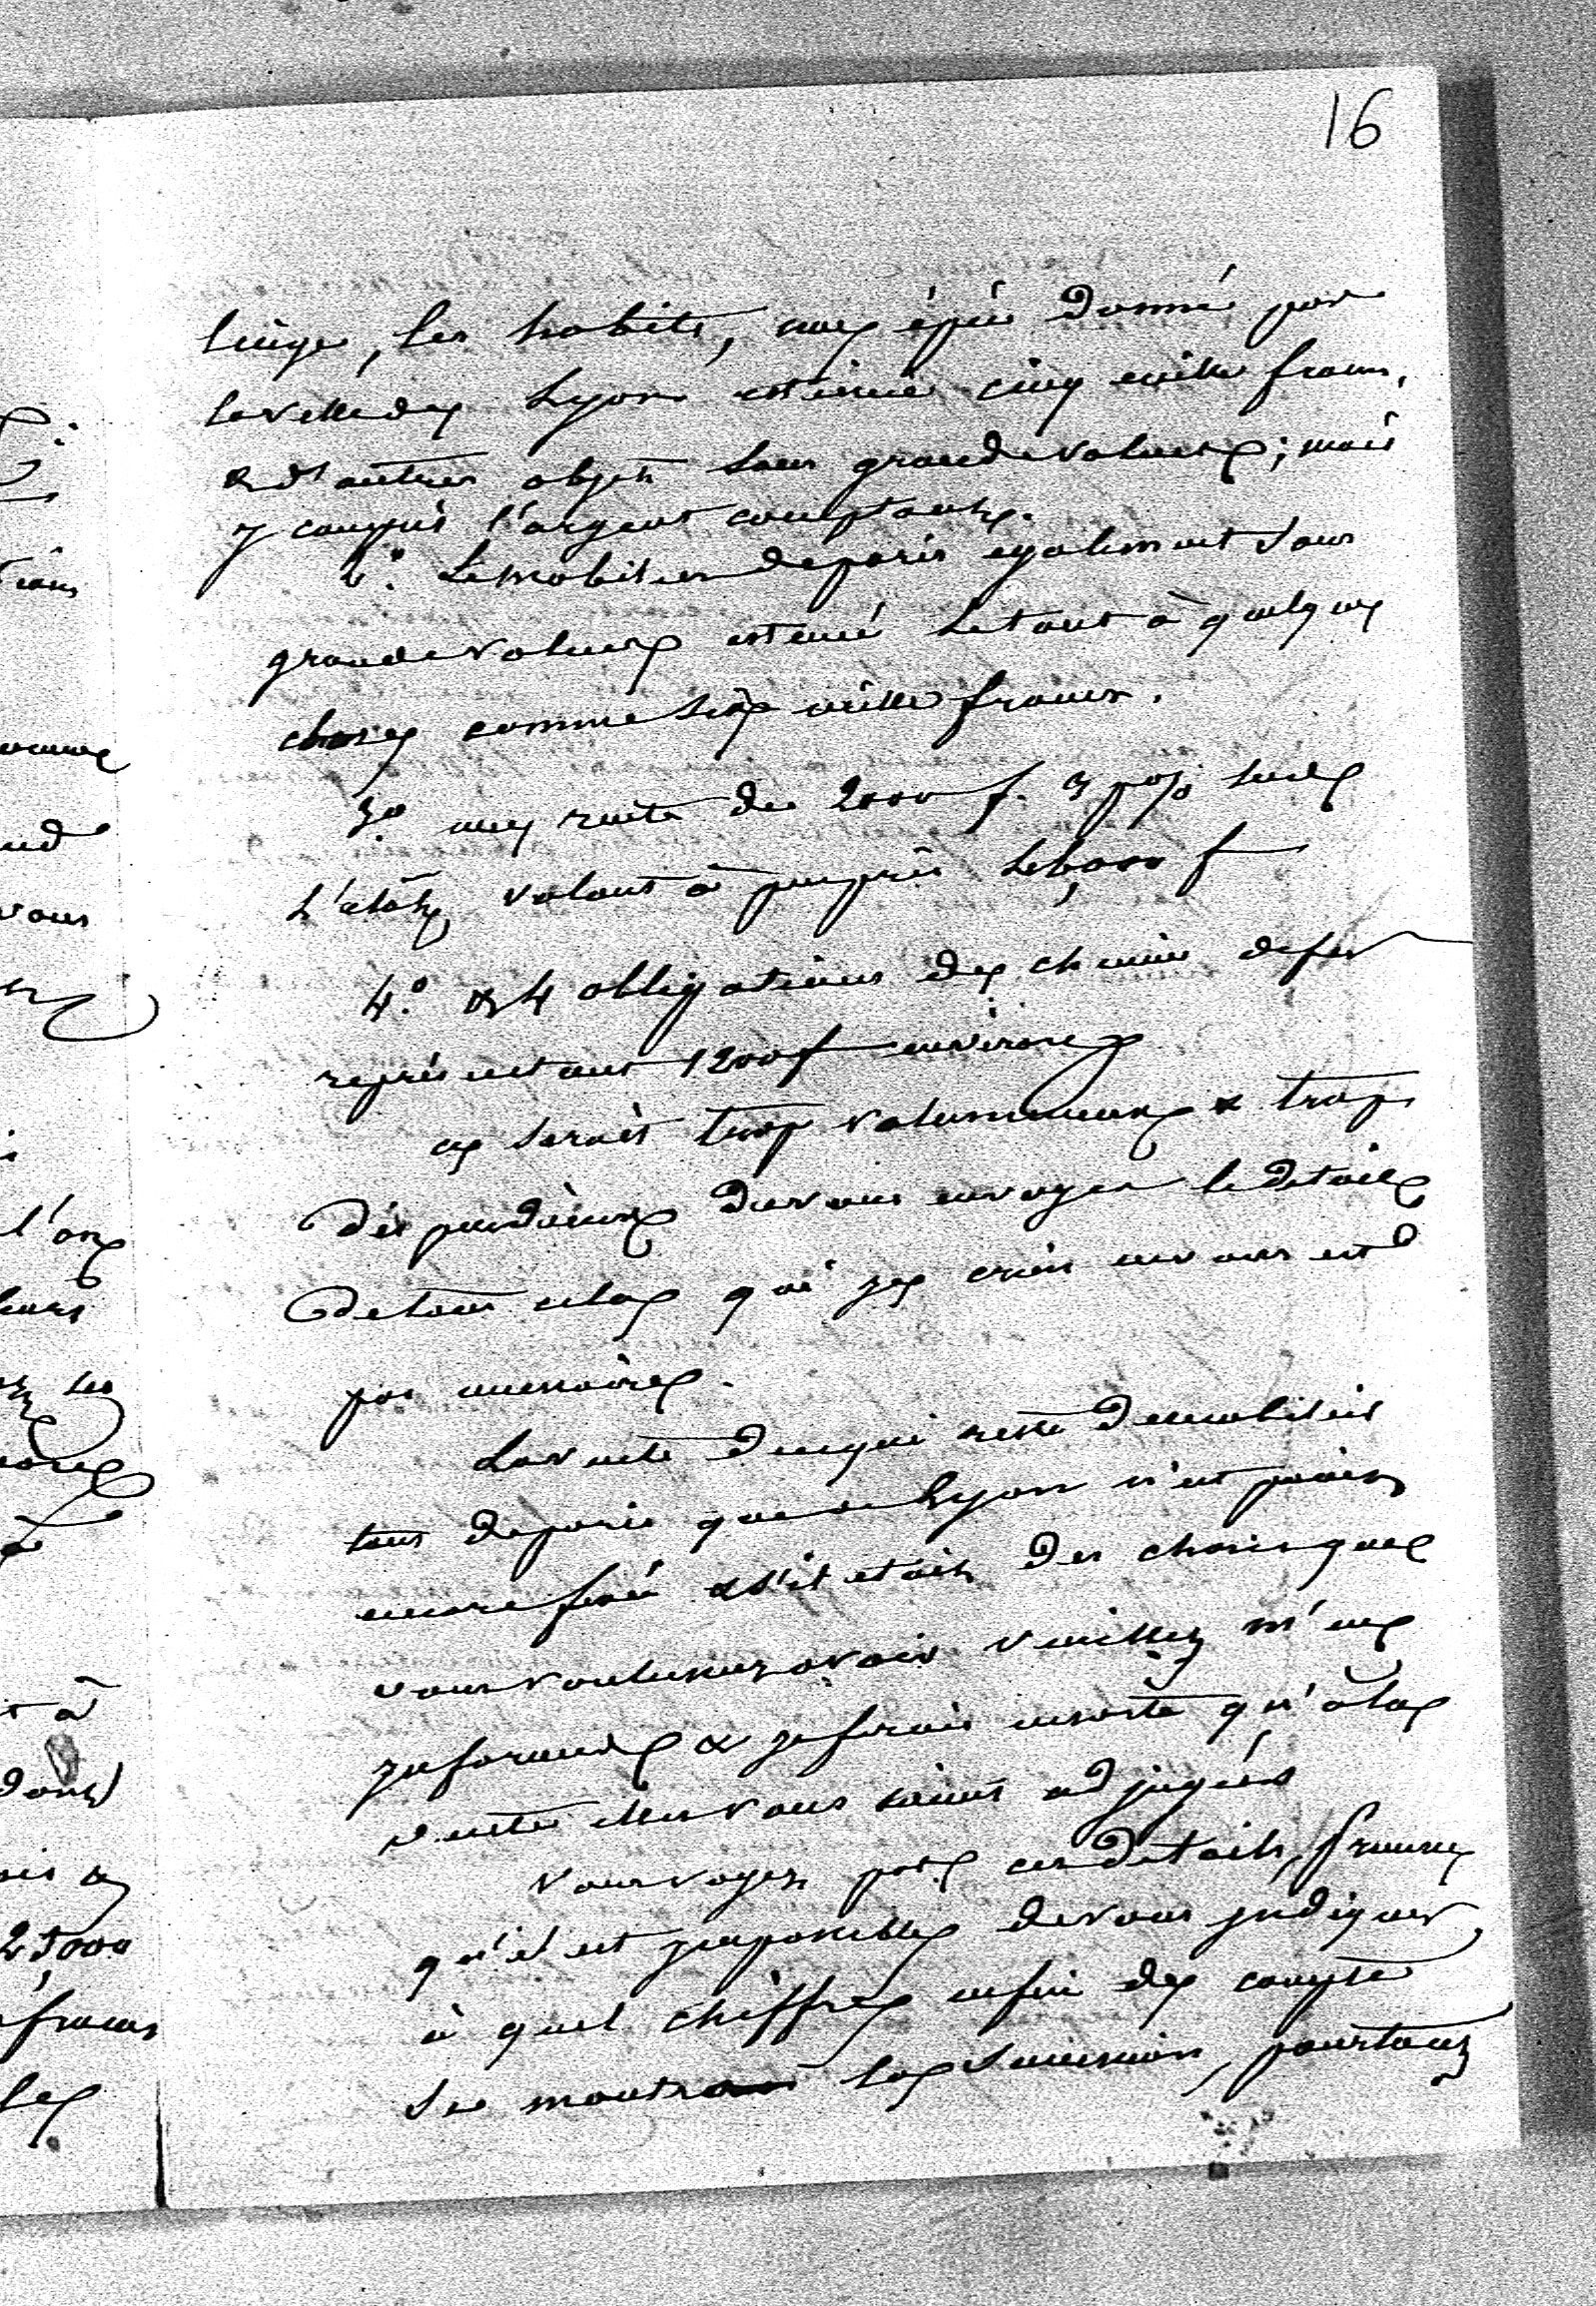 16
linge, les habits, une épée donné par
la ville de Lyon estimée cinq mille francs,
& d'autres objets sans grande valeur; mais
y compris l'argent comptant.
2°. Le mobilier de paris egalement sans
grande valeur estimé le tout à quelque
chose comme six mille francs.
3° une rente de 2000 f. 3 p% sur
l'état valant à peu près
4°. & 4 obligations de chemin de fer
représentant 1200 f environ
ce serait trop volumineux & trop
dispendieux de vous envoyer le detail
de tout cela que je crois ne vous est
pas nécessaire.
La vente de ce qui reste de mobilier
tant de paris que de Lyon n'est point
encore fixée & s'il etait des choses que
vous voulussiez avoir veuillez m'en
informer & je ferais ensorte qu'à la
vente elles vous soient adjugées
vous voyez par ces details,
qu'il est impossible de vous indiquer
à quel chiffre enfin de compte
se montra la succession, pourtant
l'on
les
à
25000
francs
vous